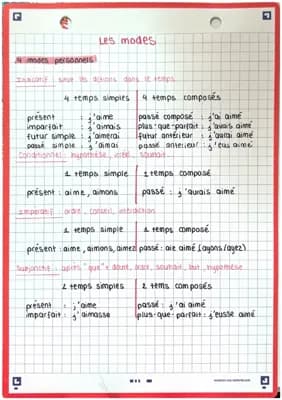 Les modes
4 modes personnels
Indicatif : situe les actions dans le temps
4 temps simples | 4 temps composés
présent : j'aime | passé composé : j'ai aimé
imparfait : j'aimais | plus-que-parfait : j'avais aimé
futur simple : j'aimerai | futur antérieur : j'aurai aimé
passé simple : j'aimai | passé antérieur : j'eus aimé
Conditionnel : hypothèse, souhait
1 temps simple | 1 temps composé
présent : aime, aimons | passé : j'aurais aimé
Impératif : ordre, conseil, interdiction
1 temps simple | 1 temps composé
présent : aime, aimons, aimez | passé : aie aimé (ayons/ayez)
Subjonctif : après "que" + doute, souhait, but, hypothèse
2 temps simples | 2 tems composés
présent : j'aime | passé : j'ai aimé
imparfait : j'aimasse | plus-que-parfait : j'eusse aimé